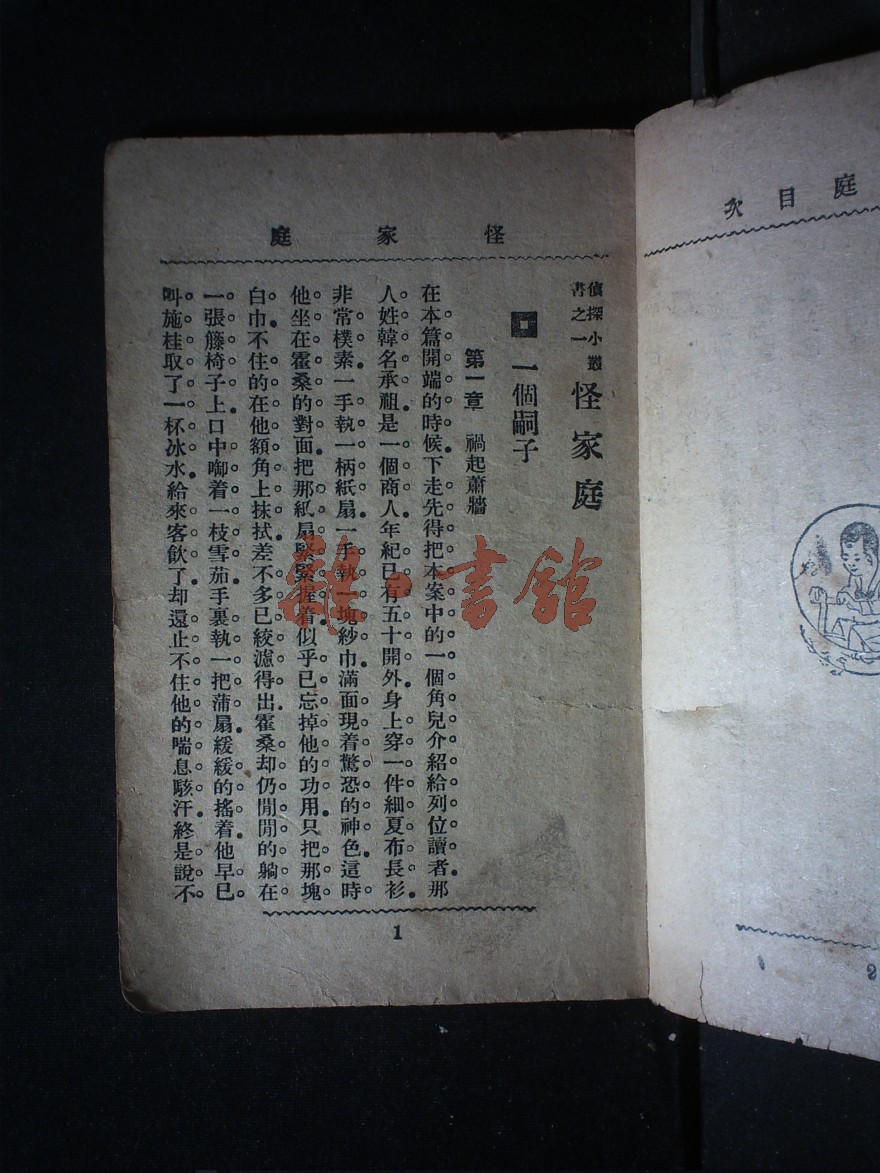 庭目次
2
怪家庭
偵探小叢
書之一
怪家庭
一個嗣子
第一章 禍起蕭牆
在本篇開端的時候下走先得把本案中的一個角兒介紹給列位讀者．那
人姓韓名承祖．是一個商人年紀已有五十開外．身上穿一件細夏布長衫．
非常樸素．一手執一柄紙扇．一手執一塊紗巾．滿面現着驚恐的神色．這時
他坐在霍桑的對面．把那紙扇緊緊握着．似乎已忘掉他的功用．只把那塊
白巾．不住的在他額角上抹拭．差不多已絞濾得出．霍桑却仍閒閒的躺在
一張籐椅子上．口中啣着一枝雪茄．手裏執一把蒲扇．緩緩的搖着．他早已
叫施桂取了一杯冰水．給來客飲了．却還止不住他的喘息駭汗．終是說不
1
雜·書館